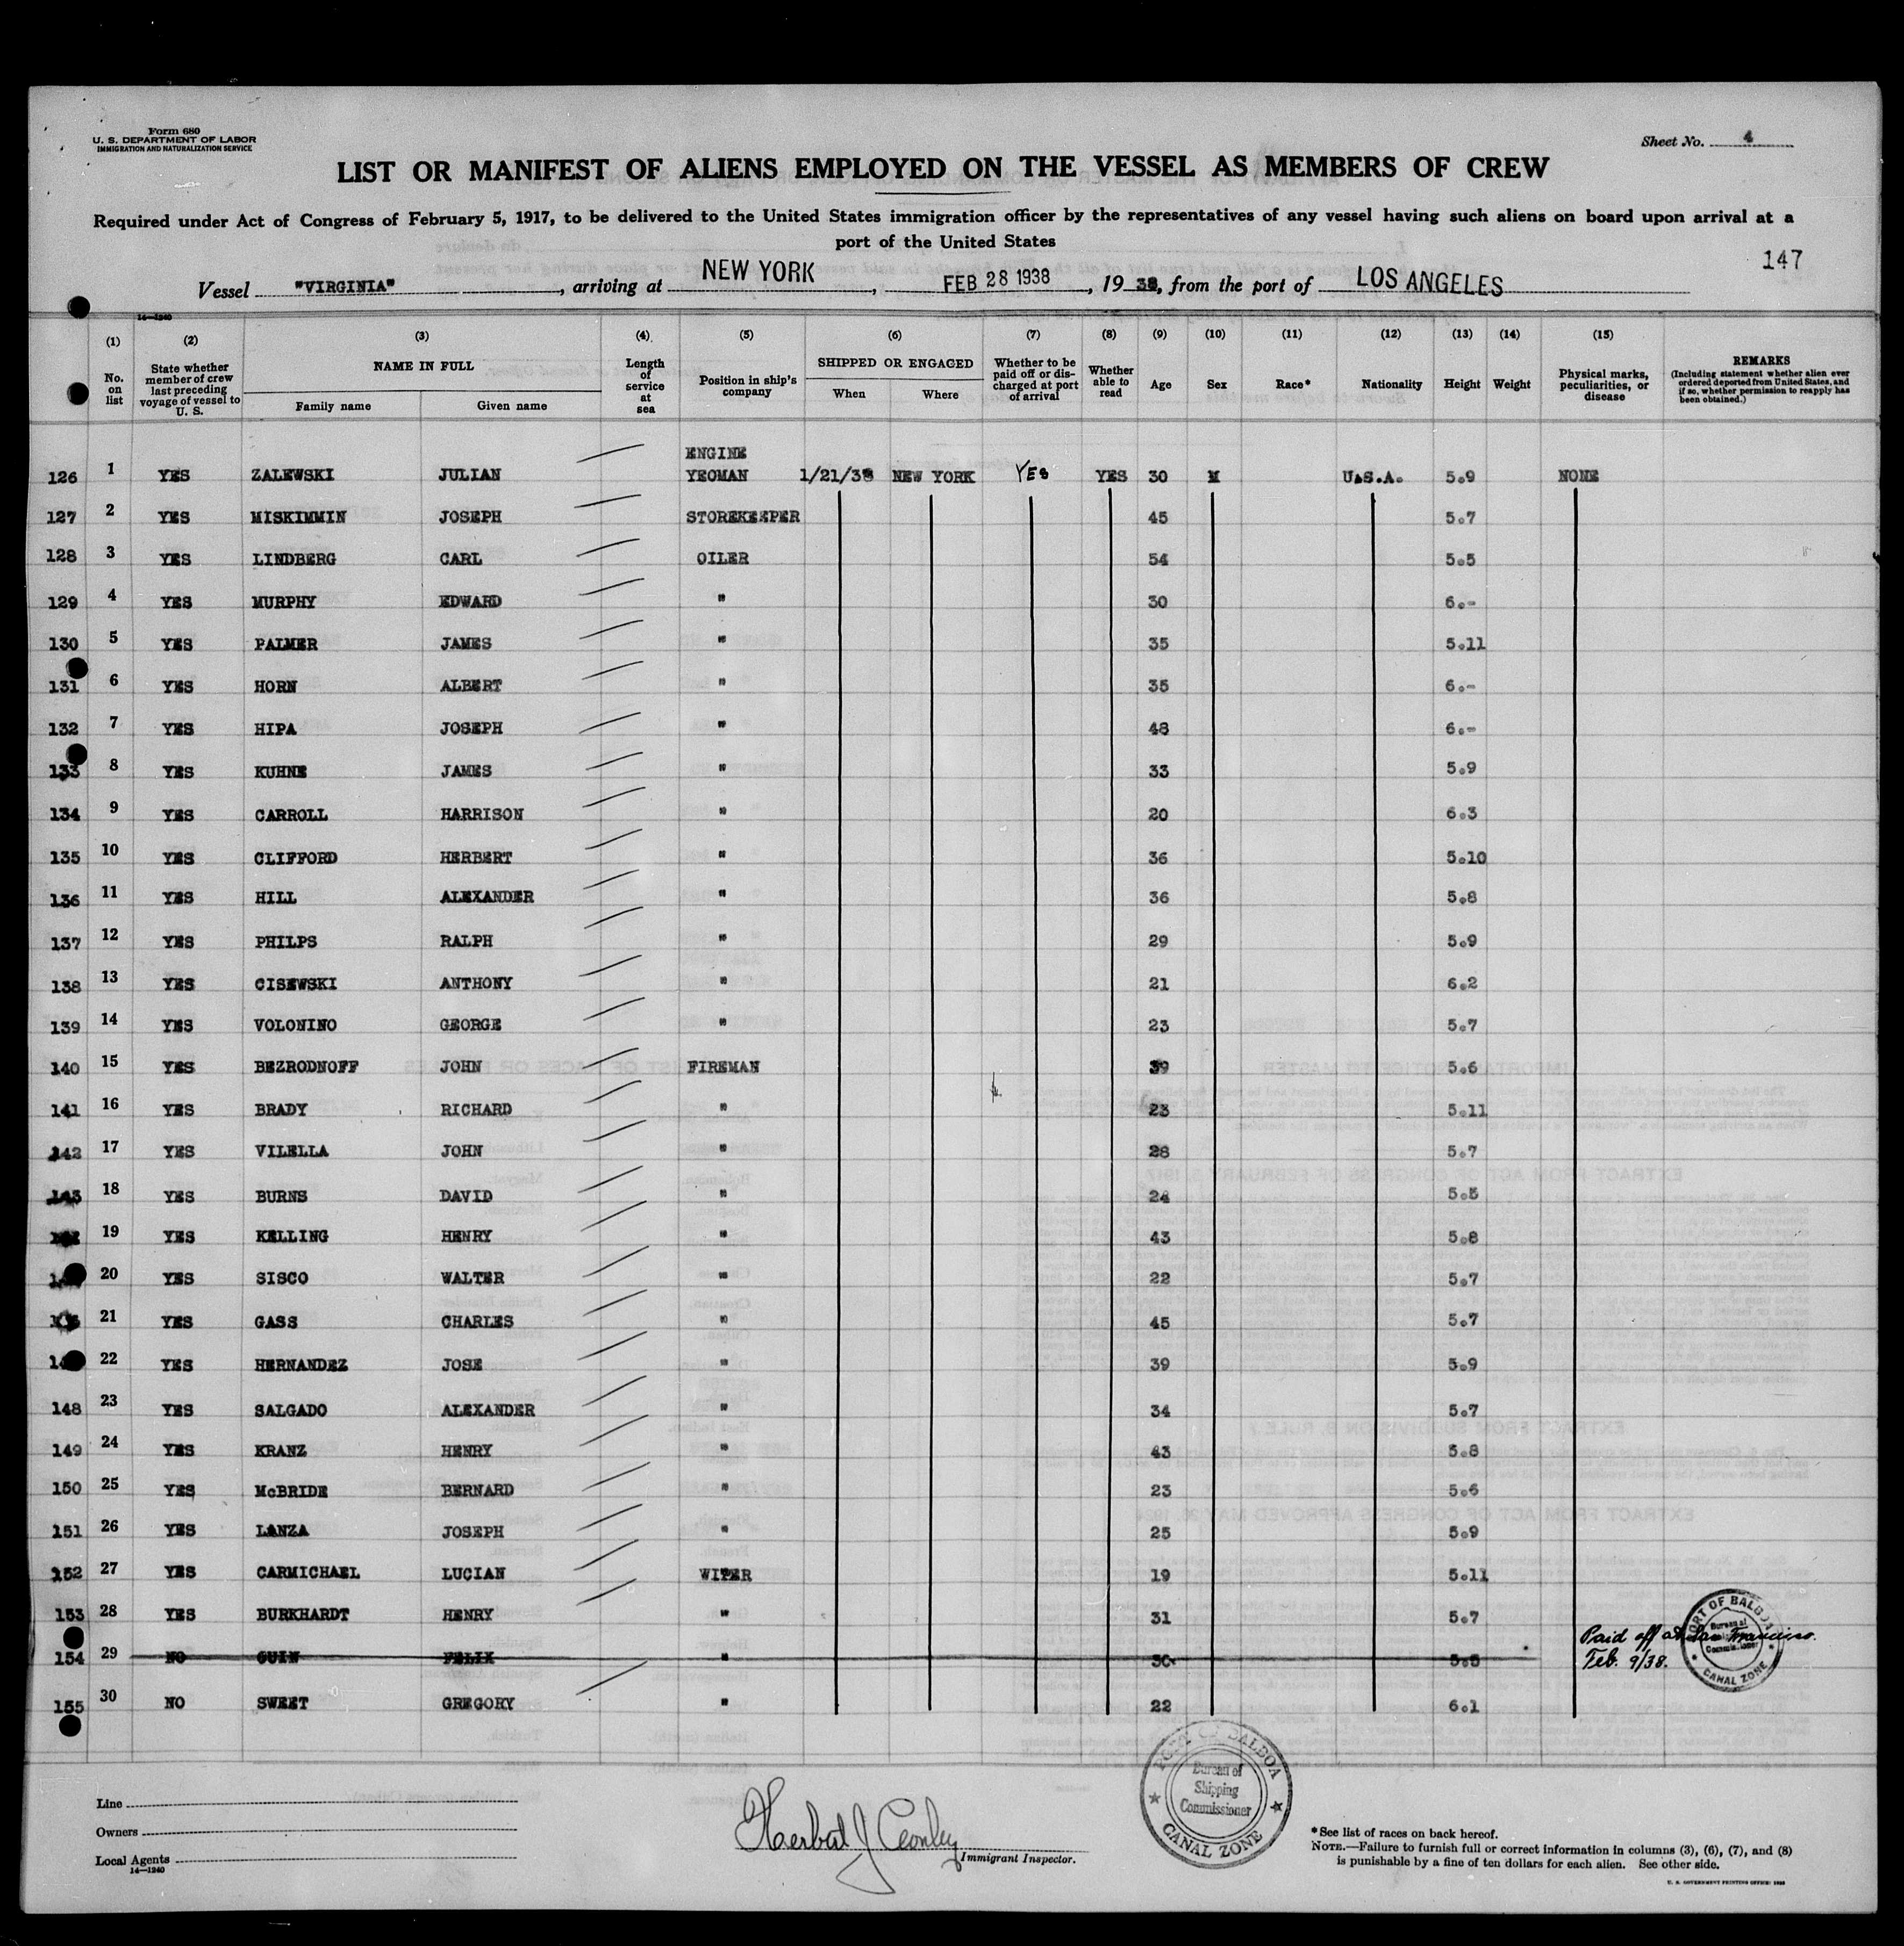 Form 680
U. S. DEPARTMENT OF LABOR
IMMIGRATION AND NATURALIZATION SERVICE
Sheet No. 4
LIST OR MANIFEST OF ALIENS EMPLOYED ON THE VESSEL AS MEMBERS OF CREW
Required under Act of Congress of February 5, 1917, to be delivered to the United States immigration officer by the representatives of any vessel having such aliens on board upon arrival at a
port of the United States
147
Vessel "VIRGINIA", arriving at NEW YORK, FEB 28 1938, 19 38, from the port of LOS ANGELES
14—1240
(1) (2) (3) (4) (5) (6) (7) (8) (9) (10) (11) (12) (13) (14) (15)
No. on list
State whether member of crew last preceding voyage of vessel to U. S.
NAME IN FULL
Family name Given name
Length of service at sea
Position in ship's company
SHIPPED OR ENGAGED
When Where
Whether to be paid off or discharged at port of arrival
Whether able to read
Age Sex Race* Nationality Height Weight
Physical marks, peculiarities, or disease
REMARKS
(Including statement whether alien ever ordered deported from United States, and if so, whether permission to reapply has been obtained.)
126 1 YES ZALEWSKI JULIAN ENGINE YEOMAN 1/21/38 NEW YORK YES YES 30 M U.S.A. 5.9 NONE
127 2 YES MISKIMMIN JOSEPH STOREKEEPER 45 5.7
128 3 YES LINDBERG CARL OILER 54 5.5
129 4 YES MURPHY EDWARD " 30 6.-
130 5 YES PALMER JAMES " 35 5.11
131 6 YES HORN ALBERT " 35 6.-
132 7 YES HIPA JOSEPH " 48 6.-
133 8 YES KUHNE JAMES " 33 5.9
134 9 YES CARROLL HARRISON " 20 6.3
135 10 YES CLIFFORD HERBERT " 36 5.10
136 11 YES HILL ALEXANDER " 36 5.8
137 12 YES PHILPS RALPH " 29 5.9
138 13 YES CISEWSKI ANTHONY " 21 6.2
139 14 YES VOLONINO GEORGE " 23 5.7
140 15 YES BEZRODNOFF JOHN FIREMAN 39 5.6
141 16 YES BRADY RICHARD " 23 5.11
142 17 YES VILELLA JOHN " 28 5.7
143 18 YES BURNS DAVID " 24 5.5
19 YES KELLING HENRY " 43 5.8
20 YES SISCO WALTER " 22 5.7
21 YES GASS CHARLES " 45 5.7
22 YES HERNANDEZ JOSE " 39 5.9
148 23 YES SALGADO ALEXANDER " 34 5.7
149 24 YES KRANZ HENRY " 43 5.8
150 25 YES McBRIDE BERNARD " 23 5.6
151 26 YES LANZA JOSEPH " 25 5.9
152 27 YES CARMICHAEL LUCIAN WIPER 19 5.11
153 28 YES BURKHARDT HENRY " 31 5.7
154 29 NO GUIN FELIX " 30 5.5 Paid off at San Francisco. Feb. 9/38.
155 30 NO SWEET GREGORY " 22 6.1
PORT OF BALBOA
Bureau of Shipping Commissioner
CANAL ZONE
PORT OF BALBOA
Bureau of
Shipping
Commissioner
CANAL ZONE
Line
Owners
Local Agents
14—1240
Herbert J
Immigrant Inspector.
*See list of races on back hereof.
NOTE.—Failure to furnish full or correct information in columns (3), (6), (7), and (8)
is punishable by a fine of ten dollars for each alien. See other side.
U. S. GOVERNMENT PRINTING OFFICE: